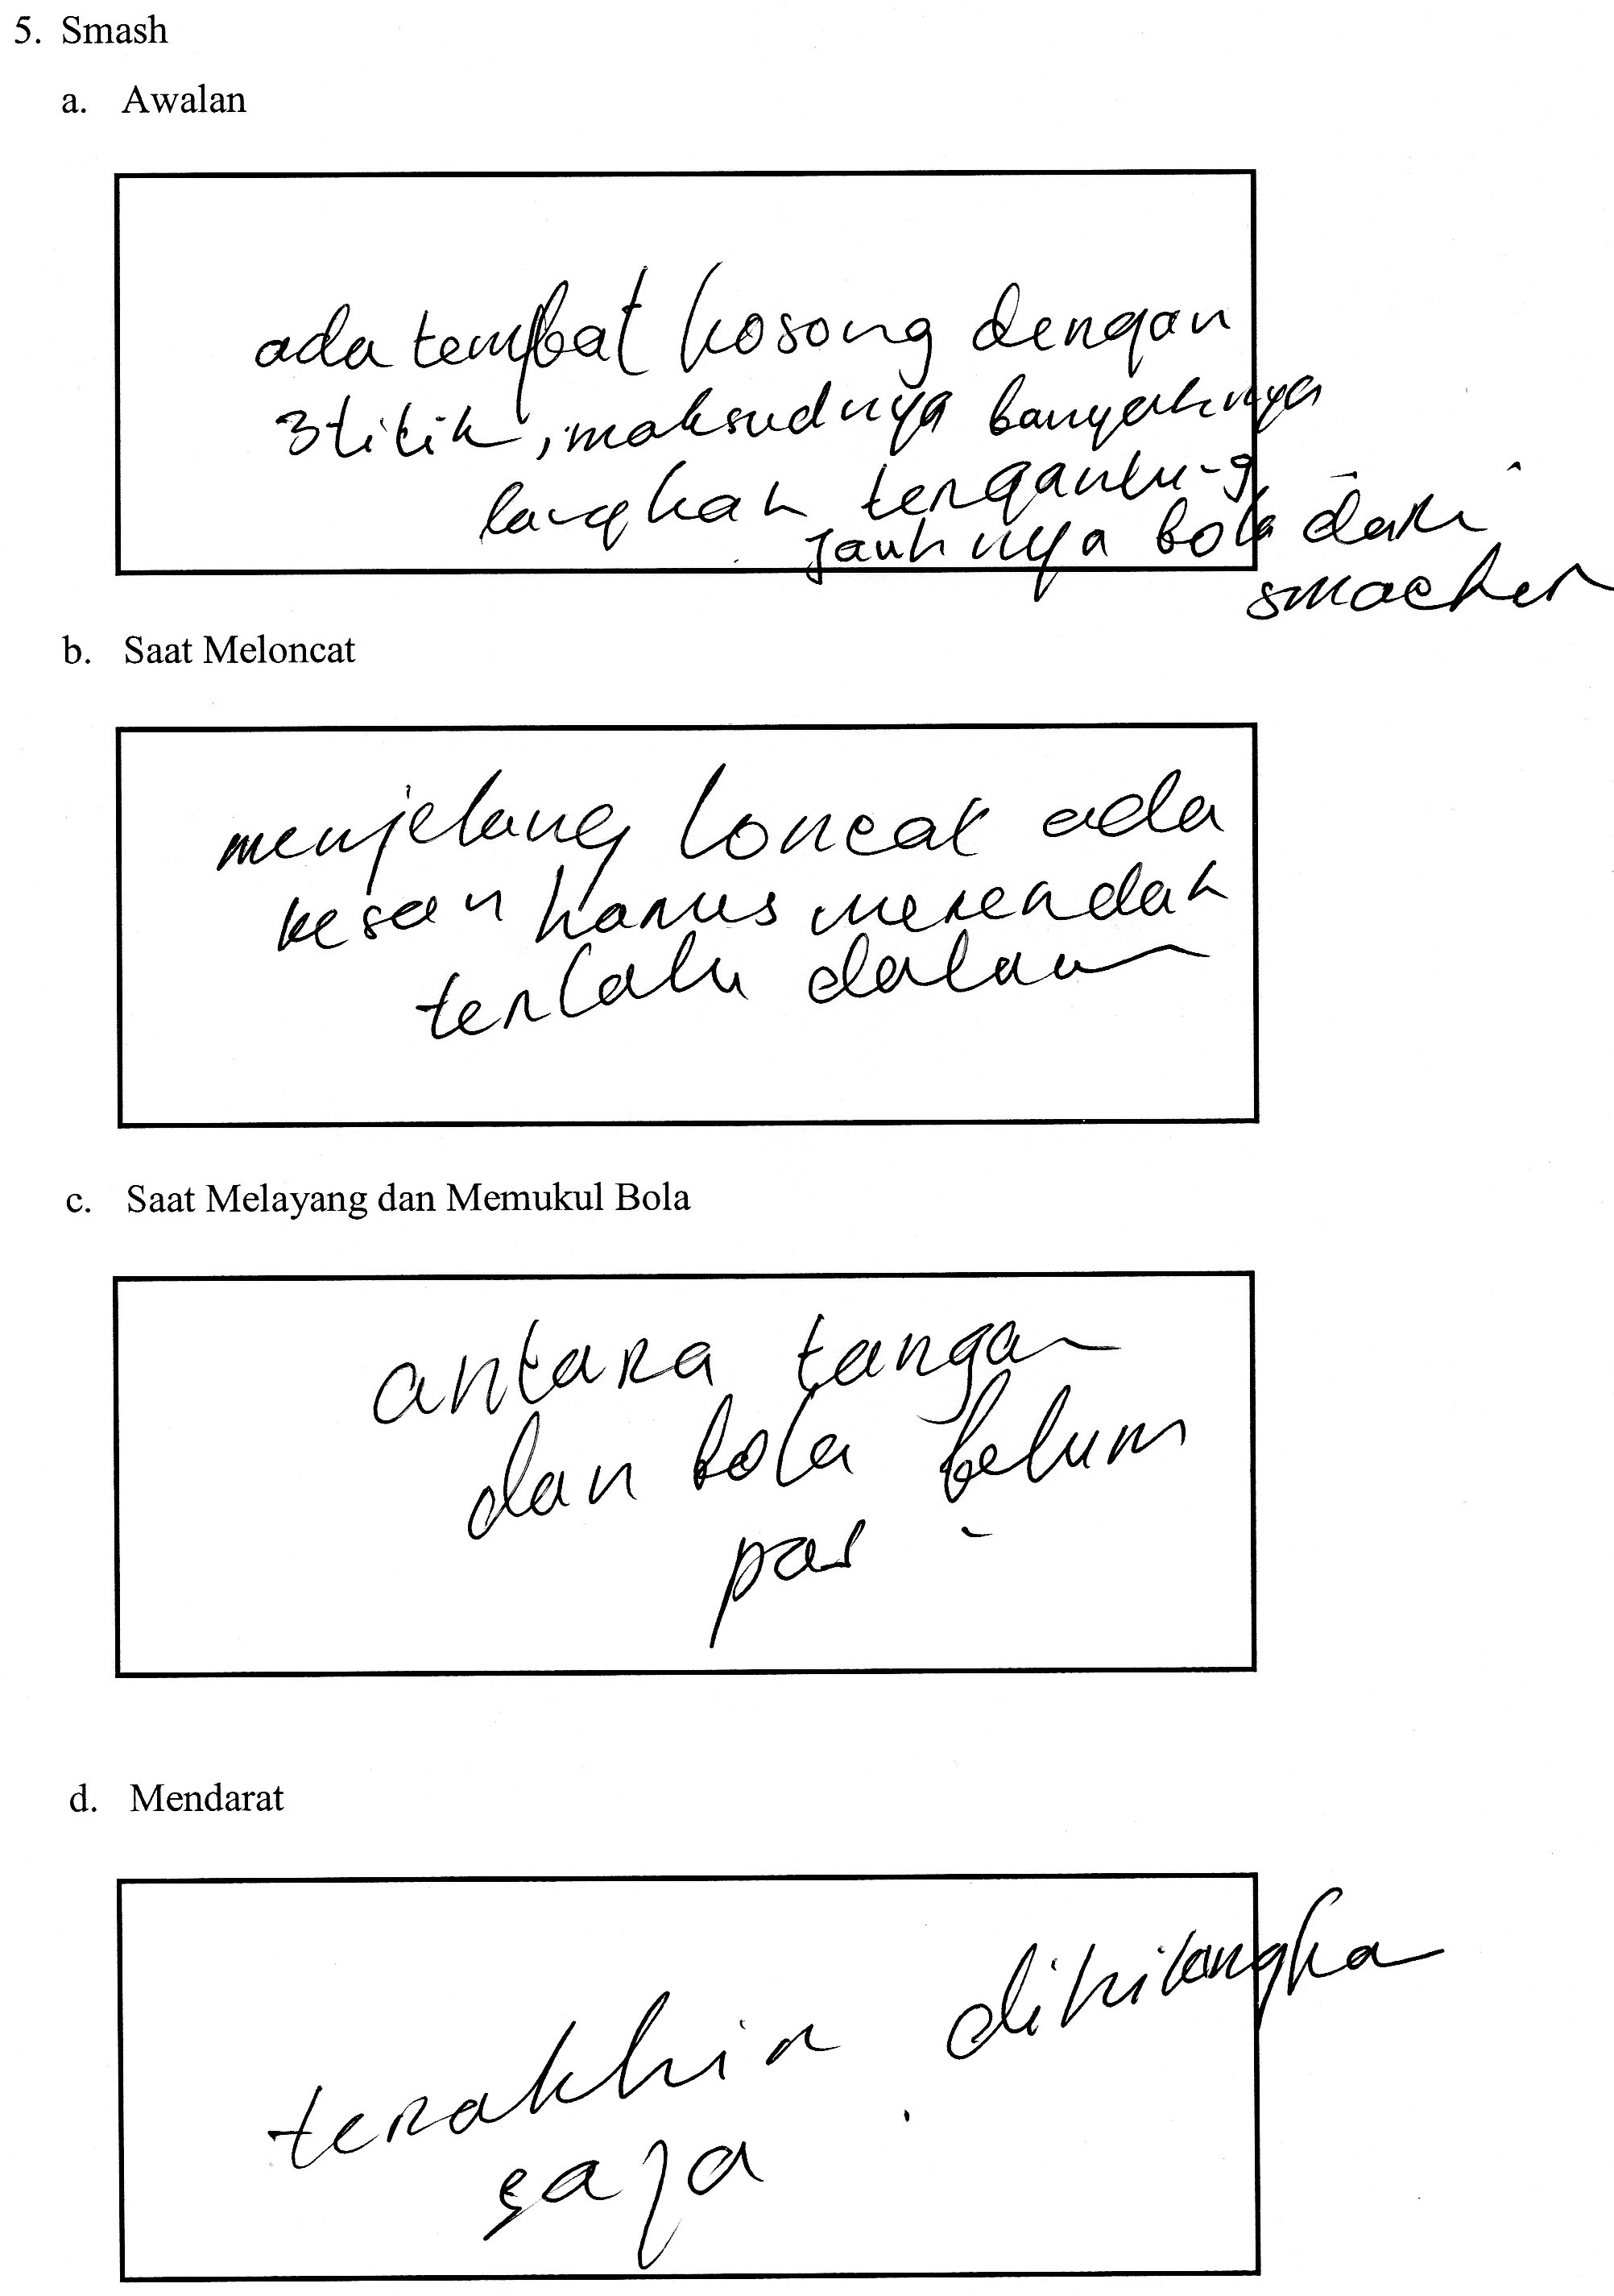 5. Smash
a. Awalan
ada tempat kosong dengan
3 titik, maksudnya banyaknya
langkah tergantung
jauhnya bola dari
smacher
b. Saat Meloncat
menjelang loncat ada
kesan harus merendah
terlalu dalam
c. Saat Melayang dan Memukul Bola
antara tangan
dan bola belum
pas
d. Mendarat
terakhir dihilangkan
saja.